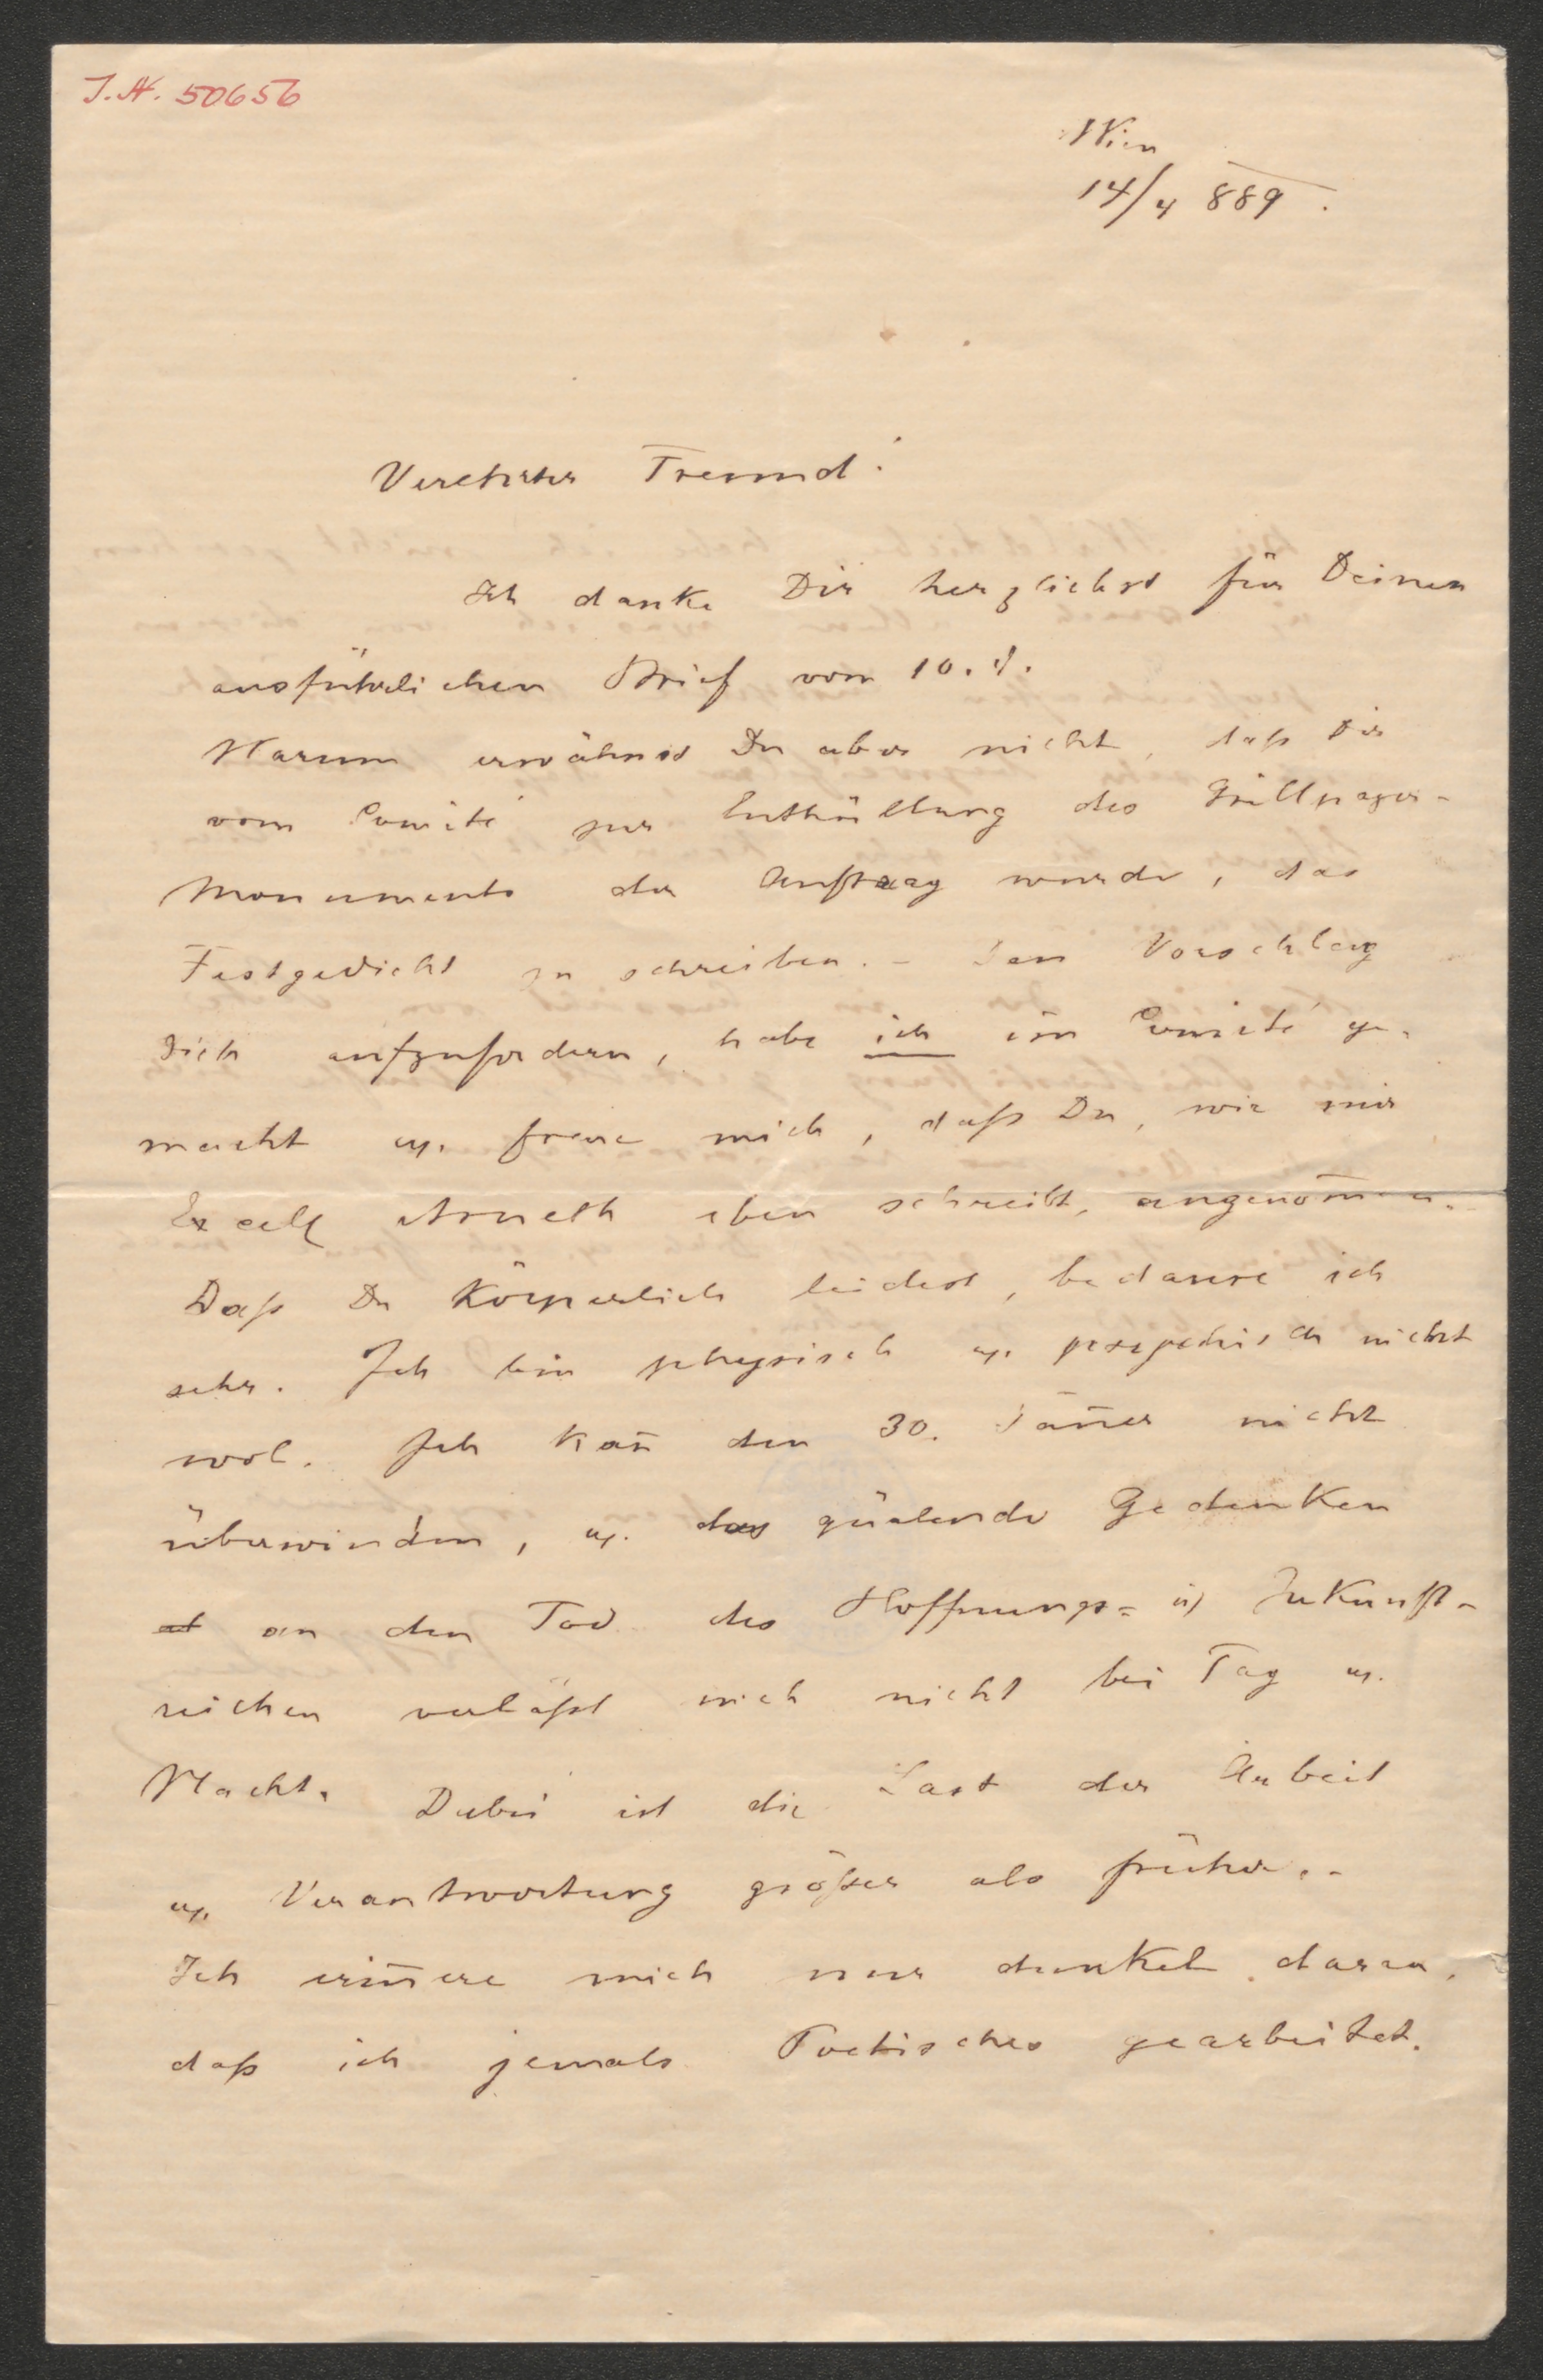 J.N. 50656
Wien
14/4 889.
Verehrter Freund!
Ich danke Dir herzlichst für Deinen
ausführlichen Brief vom 10. d.
Warum erwähnst Du aber nicht, daß Dir
vom Comité zur Enthüllung des Grillparzer-
Monuments der Auftrag wurde, das
Festgedicht zu schreiben. – Den Vorschlag
Dich aufzufordern, habe ich im Comité ge-
macht u. freue mich, daß Du, wie mir
Excell Arneth eben schreibt, angenom̄en.
Daß Du körperlich leidest, bedaure ich
sehr. Ich bin physisch u. psychisch nicht
wol. Ich kan̄ den 30. Jän̄er nicht
überwinden, u. das quälende Gedenken
an den Tod des Hoffnungs- u Zukunft-
reichen verläßt mich nicht bei Tag u.
Nacht. Dabei ist die Last der Arbeit
u. Verantwortung größer als früher. –
Ich erin̄ere mich nur dunkel daran,
daß ich jemals Poetisches gearbeitet.